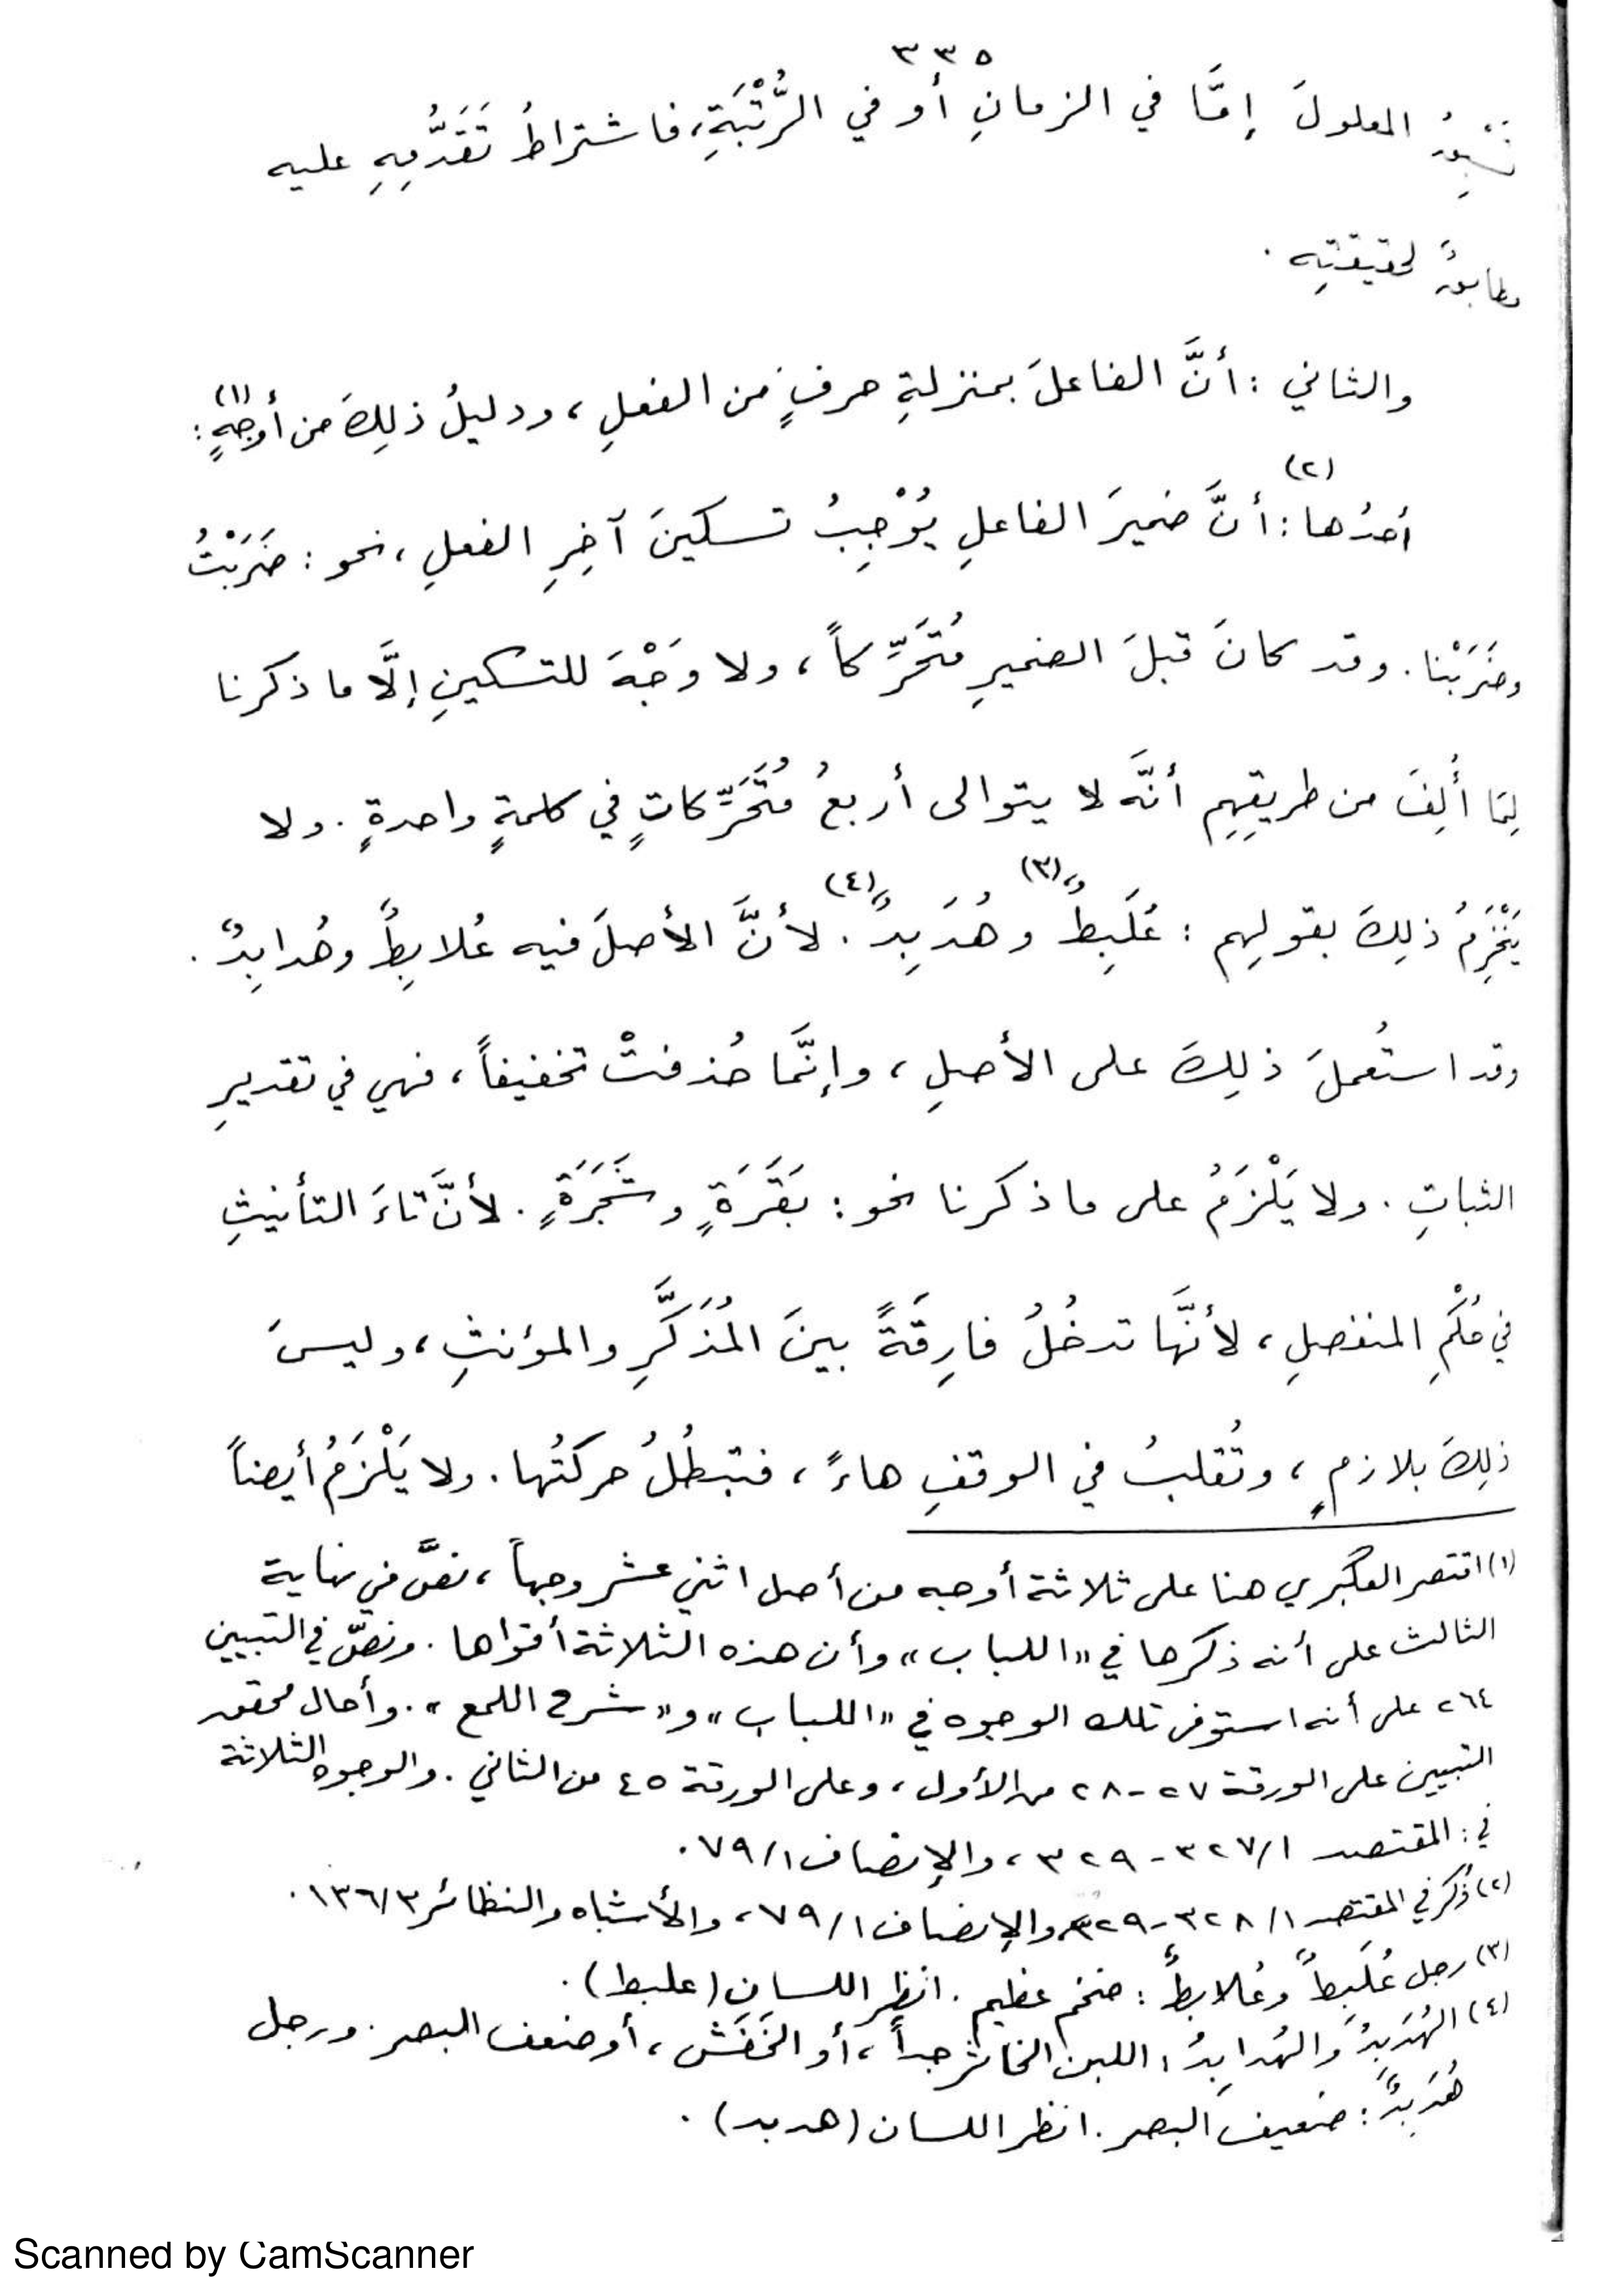 ٣٣٥
المعلولَ إمَّا في الزمانِ أو في الرُّتْبَةِ، فاشتراطُ تَقَدُّمِهِ عليه
مطابقةٌ لحقيقتِه .
والثاني : أنَّ الفاعلَ بمنزلةِ حرفٍ من الفعلِ ، ودليلُ ذلِكَ من أوجهٍ(١) :
أحدُها(٢) : أنَّ ضميرَ الفاعلِ يُوْجِبُ تسكينَ آخِرِ الفعلِ ، نحو : ضَرَبْتُ
وضَرَبْنا . وقد كانَ قبلَ الضميرِ مُتَحَرِّكاً ، ولا وَجْهَ للتسكينِ إلَّا ما ذكرنا
لِمَا أُلِفَ من طريقِهِم أنَّه لا يتوالى أربعُ مُتَحَرِّكاتٍ في كلمةٍ واحدةٍ . ولا
يَنْخَرِمُ ذلِكَ بقولِهِم : عُلَبِطٌ(٣) وهُدَبِدٌ(٤) . لأنَّ الأصلَ فيه عُلابِطٌ وهُدابِدٌ .
وقد استُعملَ ذلِكَ على الأصلِ ، وإنَّما حُذفتْ تخفيفاً ، فهي في تقديرِ
الثباتِ . ولا يَلْزَمُ على ما ذكرنا نحو : بَقَرَةٍ وشَجَرَةٍ . لأنَّ تاءَ التأنيثِ
في حُكْمِ المنفصلِ ، لأنَّها تدخُلُ فارِقَةً بينَ المُذَكَّرِ والمؤنثِ ، وليسَ
ذلِكَ بلازمٍ ، وتُقلبُ في الوقفِ هاءً ، فتبطُلُ حركتُها . ولا يَلْزَمُ أيضاً
(١) اقتصر العكبري هنا على ثلاثة أوجه من أصل اثني عشر وجهاً ، نصَّ في نهاية
الثالث على أنه ذكرها في «اللباب» وأن هذه الثلاثة أقواها . ونصّ في التبيين
٢٦٤ على أنه استوفى تلك الوجوه في «اللباب» و«شرح اللمع» . وأحال محقق
التبيين على الورقة ٢٧-٢٨ من الأول ، وعلى الورقة ٤٥ من الثاني . والوجوه الثلاثة
في : المقتصد ١/ ٣٢٧-٣٢٩ ، والإنصاف ١/ ٧٩ .
(٢) ذُكر في المقتصد ١/ ٣٢٨-٣٢٩ والإنصاف ١/ ٧٩ ، والأشباه والنظائر ٣/ ١٣٦ .
(٣) رجل عُلَبِطٌ وعُلابِطٌ : ضخم عظيم . انظر اللسان (علبط) .
(٤) الهُدَبِدُ والهُدابِدُ : اللبن الخاثر جداً ، أو الخَفَش ، أو ضعف البصر . ورجل
هُدَبِدٌ : ضعيف البصر . انظر اللسان (هدبد) .
Scanned by CamScanner